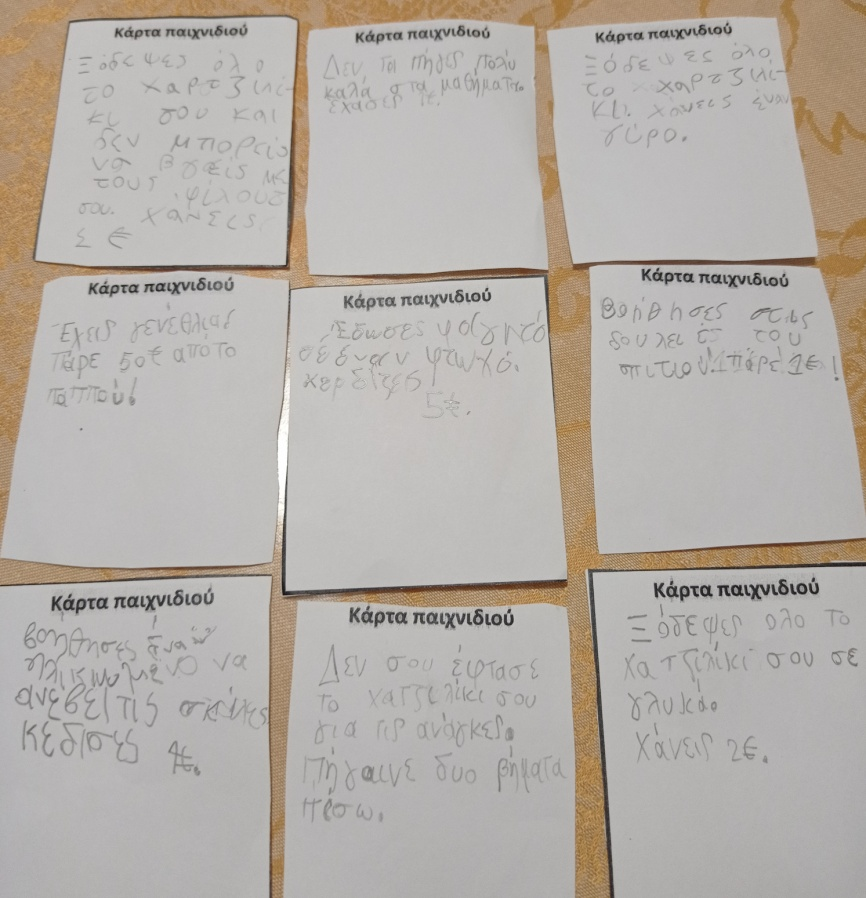 Κάρτα παιχνιδιού
Ξόδεψες όλο
το χαρτζιλί-
κι σου και
δεν μπορείς
να βγαίς με
τους φίλους
σου. χάνεις
Κάρτα παιχνιδιού
Δεν τα πήγες πολύ
καλά στα μαθήματα.
έχασες
Κάρτα παιχνιδιού
Ξόδεψες όλο
το χαρτζιλί-
κι. χάνεις έναν
γύρο.
Κάρτα παιχνιδιού
Έχεις γενέθλιας
Πάρε 50€ από το
παππού!
Κάρτα παιχνιδιού
Έδωσες φαγητό
σέ έναν φτωχό.
κερδίζες
5€.
Κάρτα παιχνιδιού
Βοήθησες στις
δουλειές του
σπιτιού! πάρε 1€!
Κάρτα παιχνιδιού
βοήθησες ένα
ηλικιωμένο να
ανέβει τις σκάλες
κέδισες 1€.
Κάρτα παιχνιδιού
Δεν σου έφτασε
το χατζιλίκι σου
για τις ανάγκες.
Πήγαινε δυο βήματα
πίσω.
Κάρτα παιχνιδιού
Ξόδεψες ολο το
χατζιλίκι σου σε
γλυκά.
Χάνεις 2€.